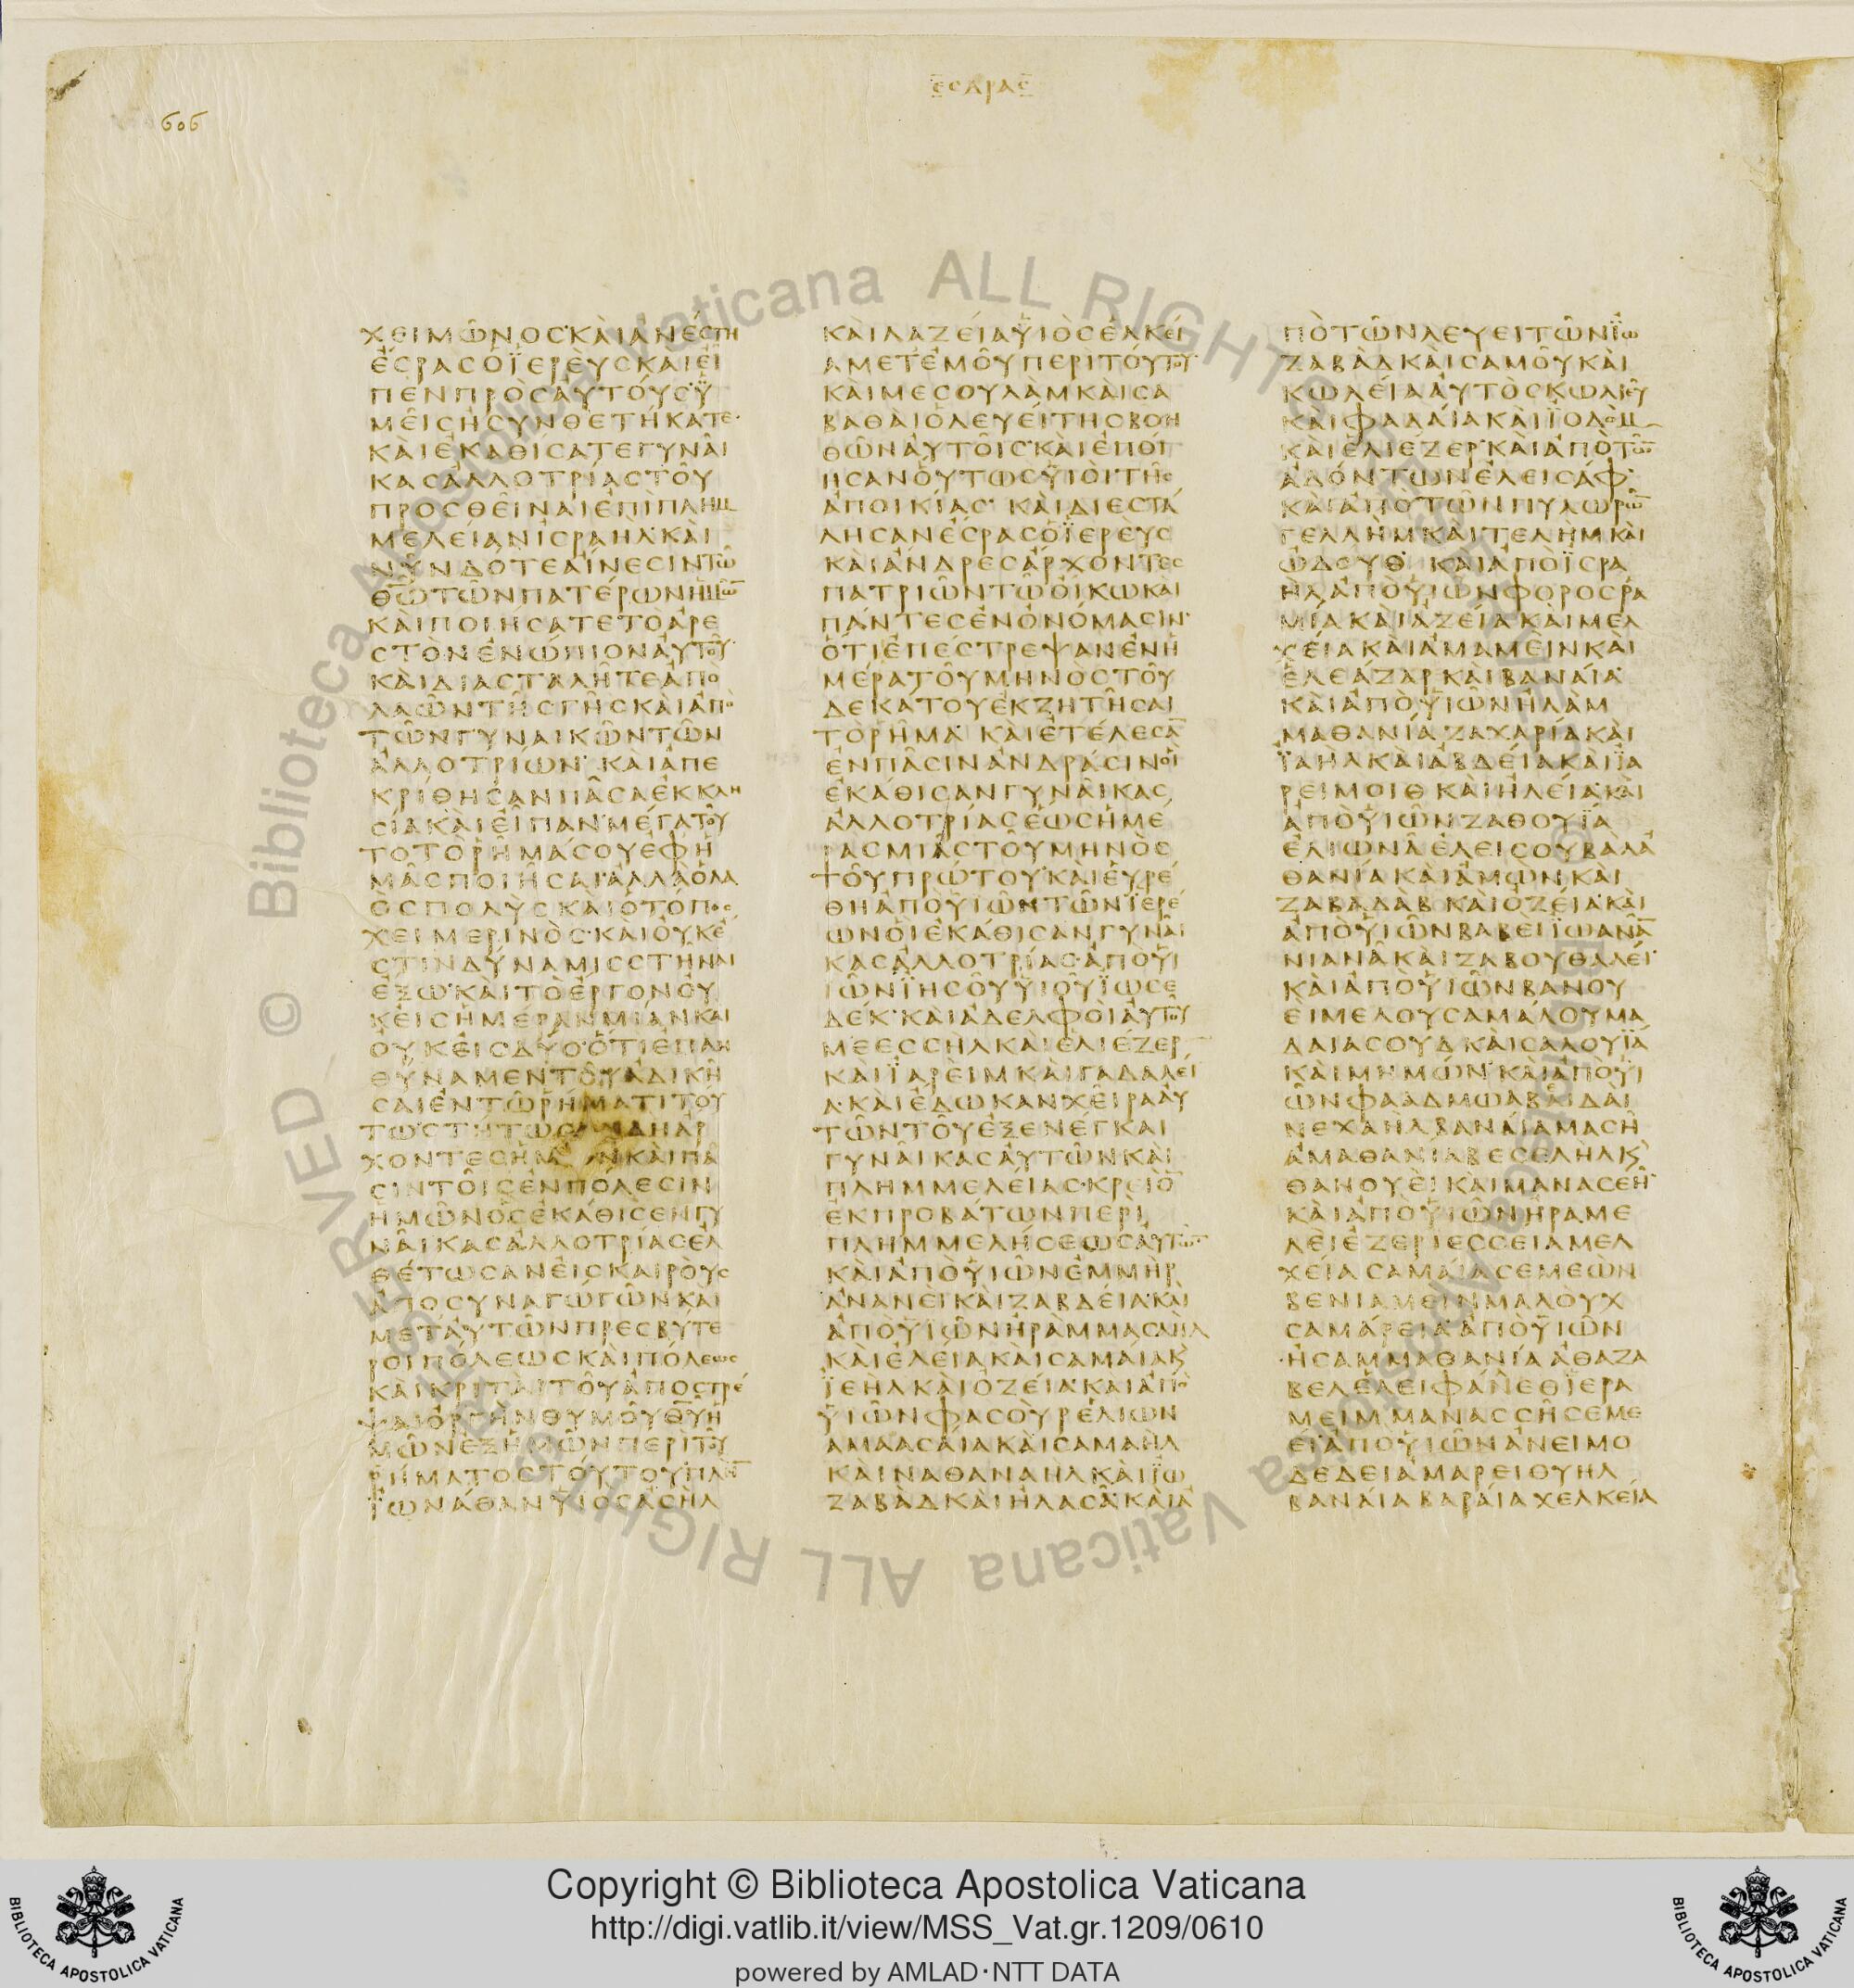 ΕΣΔΡΑΣ
606
ΧΕΙΜΩΝΟΣ ΚΑΙ ΑΝΕΣΤΗ
ΕΣΡΑΣ Ο ΙΕΡΕΥΣ ΚΑΙ ΕΙ
ΠΕΝ ΠΡΟΣ ΑΥΤΟΥΣ Υ
ΜΕΙΣ ΗΣΥΝΘΕΤΗΚΑΤΕ
ΚΑΙ ΕΚΑΘΙΣΑΤΕ ΓΥΝΑΙ
ΚΑΣ ΑΛΛΟΤΡΙΑΣ ΤΟΥ
ΠΡΟΣΘΕΙΝΑΙ ΕΠΙ ΠΛΗΜ
ΜΕΛΕΙΑΝ ΙΣΡΑΗΛ ΚΑΙ
ΝΥΝ ΔΟΤΕ ΑΙΝΕΣΙΝ ΤΩ
ΘΩ ΤΩΝ ΠΑΤΕΡΩΝ ΗΜΩ
ΚΑΙ ΠΟΙΗΣΑΤΕ ΤΟ ΑΡΕ
ΣΤΟΝ ΕΝΩΠΙΟΝ ΑΥΤΟΥ
ΚΑΙ ΔΙΑΣΤΑΛΗΤΕ ΑΠΟ
ΛΑΩΝ ΤΗΣ ΓΗΣ ΚΑΙ ΑΠΟ
ΤΩΝ ΓΥΝΑΙΚΩΝ ΤΩΝ
ΑΛΛΟΤΡΙΩΝ ΚΑΙ ΑΠΕ
ΚΡΙΘΗΣΑΝ ΠΑΣΑ ΕΚΚΛΗ
ΣΙΑ ΚΑΙ ΕΙΠΑΝ ΜΕΓΑ ΤΟΥ
ΤΟ ΤΟ ΡΗΜΑ ΣΟΥ ΕΦ Η
ΜΑΣ ΠΟΙΗΣΑΙ ΑΛΛΑ Ο ΛΑ
ΟΣ ΠΟΛΥΣ ΚΑΙ Ο ΤΟΠΟΣ
ΧΕΙΜΕΡΙΝΟΣ ΚΑΙ ΟΥΚ Ε
ΣΤΙΝ ΔΥΝΑΜΙΣ ΣΤΗΝΑΙ
ΕΞΩ ΚΑΙ ΤΟ ΕΡΓΟΝ ΟΥ
Κ ΕΙΣ ΗΜΕΡΑΝ ΜΙΑΝ ΚΑΙ
ΟΥΚ ΕΙΣ ΔΥΟ ΟΤΙ ΕΠΛΗ
ΘΥΝΑΜΕΝ ΤΟΥ ΑΔΙΚΗ
ΣΑΙ ΕΝ ΤΩ ΡΗΜΑΤΙ ΤΟΥ
ΤΩ ΣΤΗΤΩΣΑΝ ΔΗ ΑΡ
ΧΟΝΤΕΣ ΗΜΩΝ ΚΑΙ ΠΑ
ΣΙΝ ΤΟΙΣ ΕΝ ΠΟΛΕΣΙΝ
ΗΜΩΝ ΟΣ ΕΚΑΘΙΣΕΝ ΓΥ
ΝΑΙΚΑΣ ΑΛΛΟΤΡΙΑΣ ΕΛ
ΘΕΤΩΣΑΝ ΕΙΣ ΚΑΙΡΟΥΣ
ΑΠΟ ΣΥΝΑΓΩΓΩΝ ΚΑΙ
ΜΕΤ ΑΥΤΩΝ ΠΡΕΣΒΥΤΕ
ΡΟΙ ΠΟΛΕΩΣ ΚΑΙ ΠΟΛΕΩΣ
ΚΑΙ ΚΡΙΤΑΙ ΤΟΥ ΑΠΟΣΤΡΕ
ΨΑΙ ΟΡΓΗΝ ΘΥΜΟΥ ΘΥ Η
ΜΩΝ ΕΞ ΗΜΩΝ ΠΕΡΙ ΤΟΥ
ΡΗΜΑΤΟΣ ΤΟΥΤΟΥ ΠΛΗ
ΙΩΝΑΘΑΝ ΥΙΟΣ ΑΣΗΛ
ΚΑΙ ΛΑΖΕΙΑ ΥΙΟΣ ΕΛΚΕΙ
Α ΜΕΤ ΕΜΟΥ ΠΕΡΙ ΤΟΥΤΟΥ
ΚΑΙ ΜΕΣΟΥΛΑΜ ΚΑΙ ΣΑ
ΒΑΘΑΙ Ο ΛΕΥΕΙΤΗΣ ΒΟΗ
ΘΩΝ ΑΥΤΟΙΣ ΚΑΙ ΕΠΟΙ
ΗΣΑΝ ΟΥΤΩΣ ΥΙΟΙ ΤΗΣ
ΑΠΟΙΚΙΑΣ ΚΑΙ ΔΙΕΣΤΑ
ΛΗΣΑΝ ΕΣΡΑΣ Ο ΙΕΡΕΥΣ
ΚΑΙ ΑΝΔΡΕΣ ΑΡΧΟΝΤΕΣ
ΠΑΤΡΙΩΝ ΤΩ ΟΙΚΩ ΚΑΙ
ΠΑΝΤΕΣ ΕΝ ΟΝΟΜΑΣΙΝ
ΟΤΙ ΕΠΕΣΤΡΕΨΑΝ ΕΝ Η
ΜΕΡΑ ΤΟΥ ΜΗΝΟΣ ΤΟΥ
ΔΕΚΑΤΟΥ ΕΚΖΗΤΗΣΑΙ
ΤΟ ΡΗΜΑ ΚΑΙ ΕΤΕΛΕΣΑ
ΕΝ ΠΑΣΙΝ ΑΝΔΡΑΣΙΝ ΟΙ
ΕΚΑΘΙΣΑΝ ΓΥΝΑΙΚΑΣ
ΑΛΛΟΤΡΙΑΣ ΕΩΣ ΗΜΕ
ΡΑΣ ΜΙΑΣ ΤΟΥ ΜΗΝΟΣ
ΤΟΥ ΠΡΩΤΟΥ ΚΑΙ ΕΥΡΕ
ΘΗ ΑΠΟ ΥΙΩΝ ΤΩΝ ΙΕΡΕ
ΩΝ ΟΙ ΕΚΑΘΙΣΑΝ ΓΥΝΑΙ
ΚΑΣ ΑΛΛΟΤΡΙΑΣ ΑΠΟ ΥΙ
ΙΩΝ ΙΗΣΟΥ ΥΙΟΥ ΙΩΣΕ
ΔΕΚ ΚΑΙ ΑΔΕΛΦΟΙ ΑΥΤΟΥ
ΜΕΕΣΣΗΛ ΚΑΙ ΕΛΙΕΖΕΡ
ΚΑΙ ΙΑΡΕΙΜ ΚΑΙ ΓΑΔΑΛΕΙ
Α ΚΑΙ ΕΔΩΚΑΝ ΧΕΙΡΑ ΑΥ
ΤΩΝ ΤΟΥ ΕΞΕΝΕΓΚΑΙ
ΓΥΝΑΙΚΑΣ ΑΥΤΩΝ ΚΑΙ
ΠΛΗΜΜΕΛΕΙΑΣ ΚΡΕΙΟ
ΕΚ ΠΡΟΒΑΤΩΝ ΠΕΡΙ
ΠΛΗΜΜΕΛΗΣΕΩΣ ΑΥΤΩ
ΚΑΙ ΑΠΟ ΥΙΩΝ ΕΜΜΗΡ
ΑΝΑΝΕΙ ΚΑΙ ΖΑΒΔΕΙΑ ΚΑΙ
ΑΠΟ ΥΙΩΝ ΗΡΑΜ ΜΑΣΑΗΛ
ΚΑΙ ΕΛΕΙΑ ΚΑΙ ΣΑΜΑΙΑ Κ
ΙΕΗΛ ΚΑΙ ΟΖΕΙΑ ΚΑΙ ΑΠΟ
ΥΙΩΝ ΦΑΣΟΥΡ ΕΛΙΩΝ
ΑΜΑΑΣΑΙΑ ΚΑΙ ΣΑΜΑΗΛ
ΚΑΙ ΝΑΘΑΝΑΗΛ ΚΑΙ ΙΩ
ΖΑΒΑΔ ΚΑΙ ΗΛΑΣΑ ΚΑΙ Α
ΠΟ ΤΩΝ ΛΕΥΕΙΤΩΝ ΙΩ
ΖΑΒΑΔ ΚΑΙ ΣΑΜΟΥ ΚΑΙ
ΚΩΛΕΙΑ ΑΥΤΟΣ ΚΩΛΙΕΥ
ΚΑΙ ΦΑΔΑΙΑ ΚΑΙ ΙΟΔΟΜ
ΚΑΙ ΕΛΙΕΖΕΡ ΚΑΙ ΑΠΟ ΤΩ
ΑΔΟΝΤΩΝ ΕΛΕΙΣΑΦ
ΚΑΙ ΑΠΟ ΤΩΝ ΠΥΛΩΡΩ
ΓΕΛΛΗΜ ΚΑΙ ΤΕΛΗΜ ΚΑΙ
ΩΔΟΥΘ ΚΑΙ ΑΠΟ ΙΣΡΑ
ΗΛ ΑΠΟ ΥΙΩΝ ΦΟΡΟΣ ΡΑ
ΜΙΑ ΚΑΙ ΑΖΕΙΑ ΚΑΙ ΜΕΛ
ΧΕΙΑ ΚΑΙ ΑΜΑΜΕΙΝ ΚΑΙ
ΕΛΕΑΖΑΡ ΚΑΙ ΒΑΝΑΙΑ
ΚΑΙ ΑΠΟ ΥΙΩΝ ΗΛΑΜ
ΜΑΘΑΝΙΑ ΖΑΧΑΡΙΑ ΚΑΙ
ΙΑΗΛ ΚΑΙ ΑΒΔΕΙΑ ΚΑΙ ΙΑ
ΡΕΙΜΩΘ ΚΑΙ ΗΛΕΙΑ ΚΑΙ
ΑΠΟ ΥΙΩΝ ΖΑΘΟΥΙΑ
ΕΛΙΩΝΑ ΕΛΕΙΣΟΥΒ ΑΛΑ
ΘΑΝΙΑ ΚΑΙ ΑΜΩΝ ΚΑΙ
ΖΑΒΑΔΑΒ ΚΑΙ ΟΖΕΙΑ ΚΑΙ
ΑΠΟ ΥΙΩΝ ΒΑΒΕΙ ΙΩΑΝΑ
ΝΙΑΝΑ ΚΑΙ ΖΑΒΟΥ ΘΑΛΕΙ
ΚΑΙ ΑΠΟ ΥΙΩΝ ΒΑΝΟΥ
ΕΙ ΜΕΛΟΥΣΑΜ ΑΛΟΥΜ Α
ΔΑΙΑ ΣΟΥΔ ΚΑΙ ΣΑΛΟΥΙΑ
ΚΑΙ ΜΗΜΩΝ ΚΑΙ ΑΠΟ ΥΙ
ΩΝ ΦΑΑΔΜΩΑΒ ΑΙΔΑΙ
ΝΕΧΑΗΛ ΒΑΝΑΙΑ ΜΑΣΗ
Α ΜΑΘΑΝΙΑ ΒΕΣΕΛΗΛ Κ
ΘΑΝΟΥΕΙ ΚΑΙ ΜΑΝΑΣΕΗ
ΚΑΙ ΑΠΟ ΥΙΩΝ ΗΡΑΜ Ε
ΛΕΙΕΖΕΡ ΙΕΣΣΕΙΑ ΜΕΛ
ΧΕΙΑ ΣΑΜΑΙΑ ΣΕΜΕΩΝ
ΒΕΝΙΑΜΕΙΝ ΜΑΛΟΥΧ
ΣΑΜΑΡΕΙΑ ΑΠΟ ΥΙΩΝ
ΗΣΑΜ ΜΑΘΑΝΙΑ ΑΘΑ ΖΑ
ΒΕΛ ΕΛΕΙΦΑΝΕΘ ΙΕΡΑ
ΜΕΙΜ ΜΑΝΑΣΣΗ ΣΕΜΕ
ΕΙ ΑΠΟ ΥΙΩΝ ΑΝΕΙ ΜΟ
ΔΕΔΕΙΑ ΜΑΡΕΙ ΟΥΗΛ
ΒΑΝΑΙΑ ΒΑΡΑΙΑ ΧΕΛΚΕΙΑ
© Biblioteca Apostolica Vaticana ALL RIGHTS RESERVED
Copyright © Biblioteca Apostolica Vaticana
http://digi.vatlib.it/view/MSS_Vat.gr.1209/0610
powered by AMLAD·NTT DATA
BIBLIOTECA APOSTOLICA VATICANA
BIBLIOTECA APOSTOLICA VATICANA